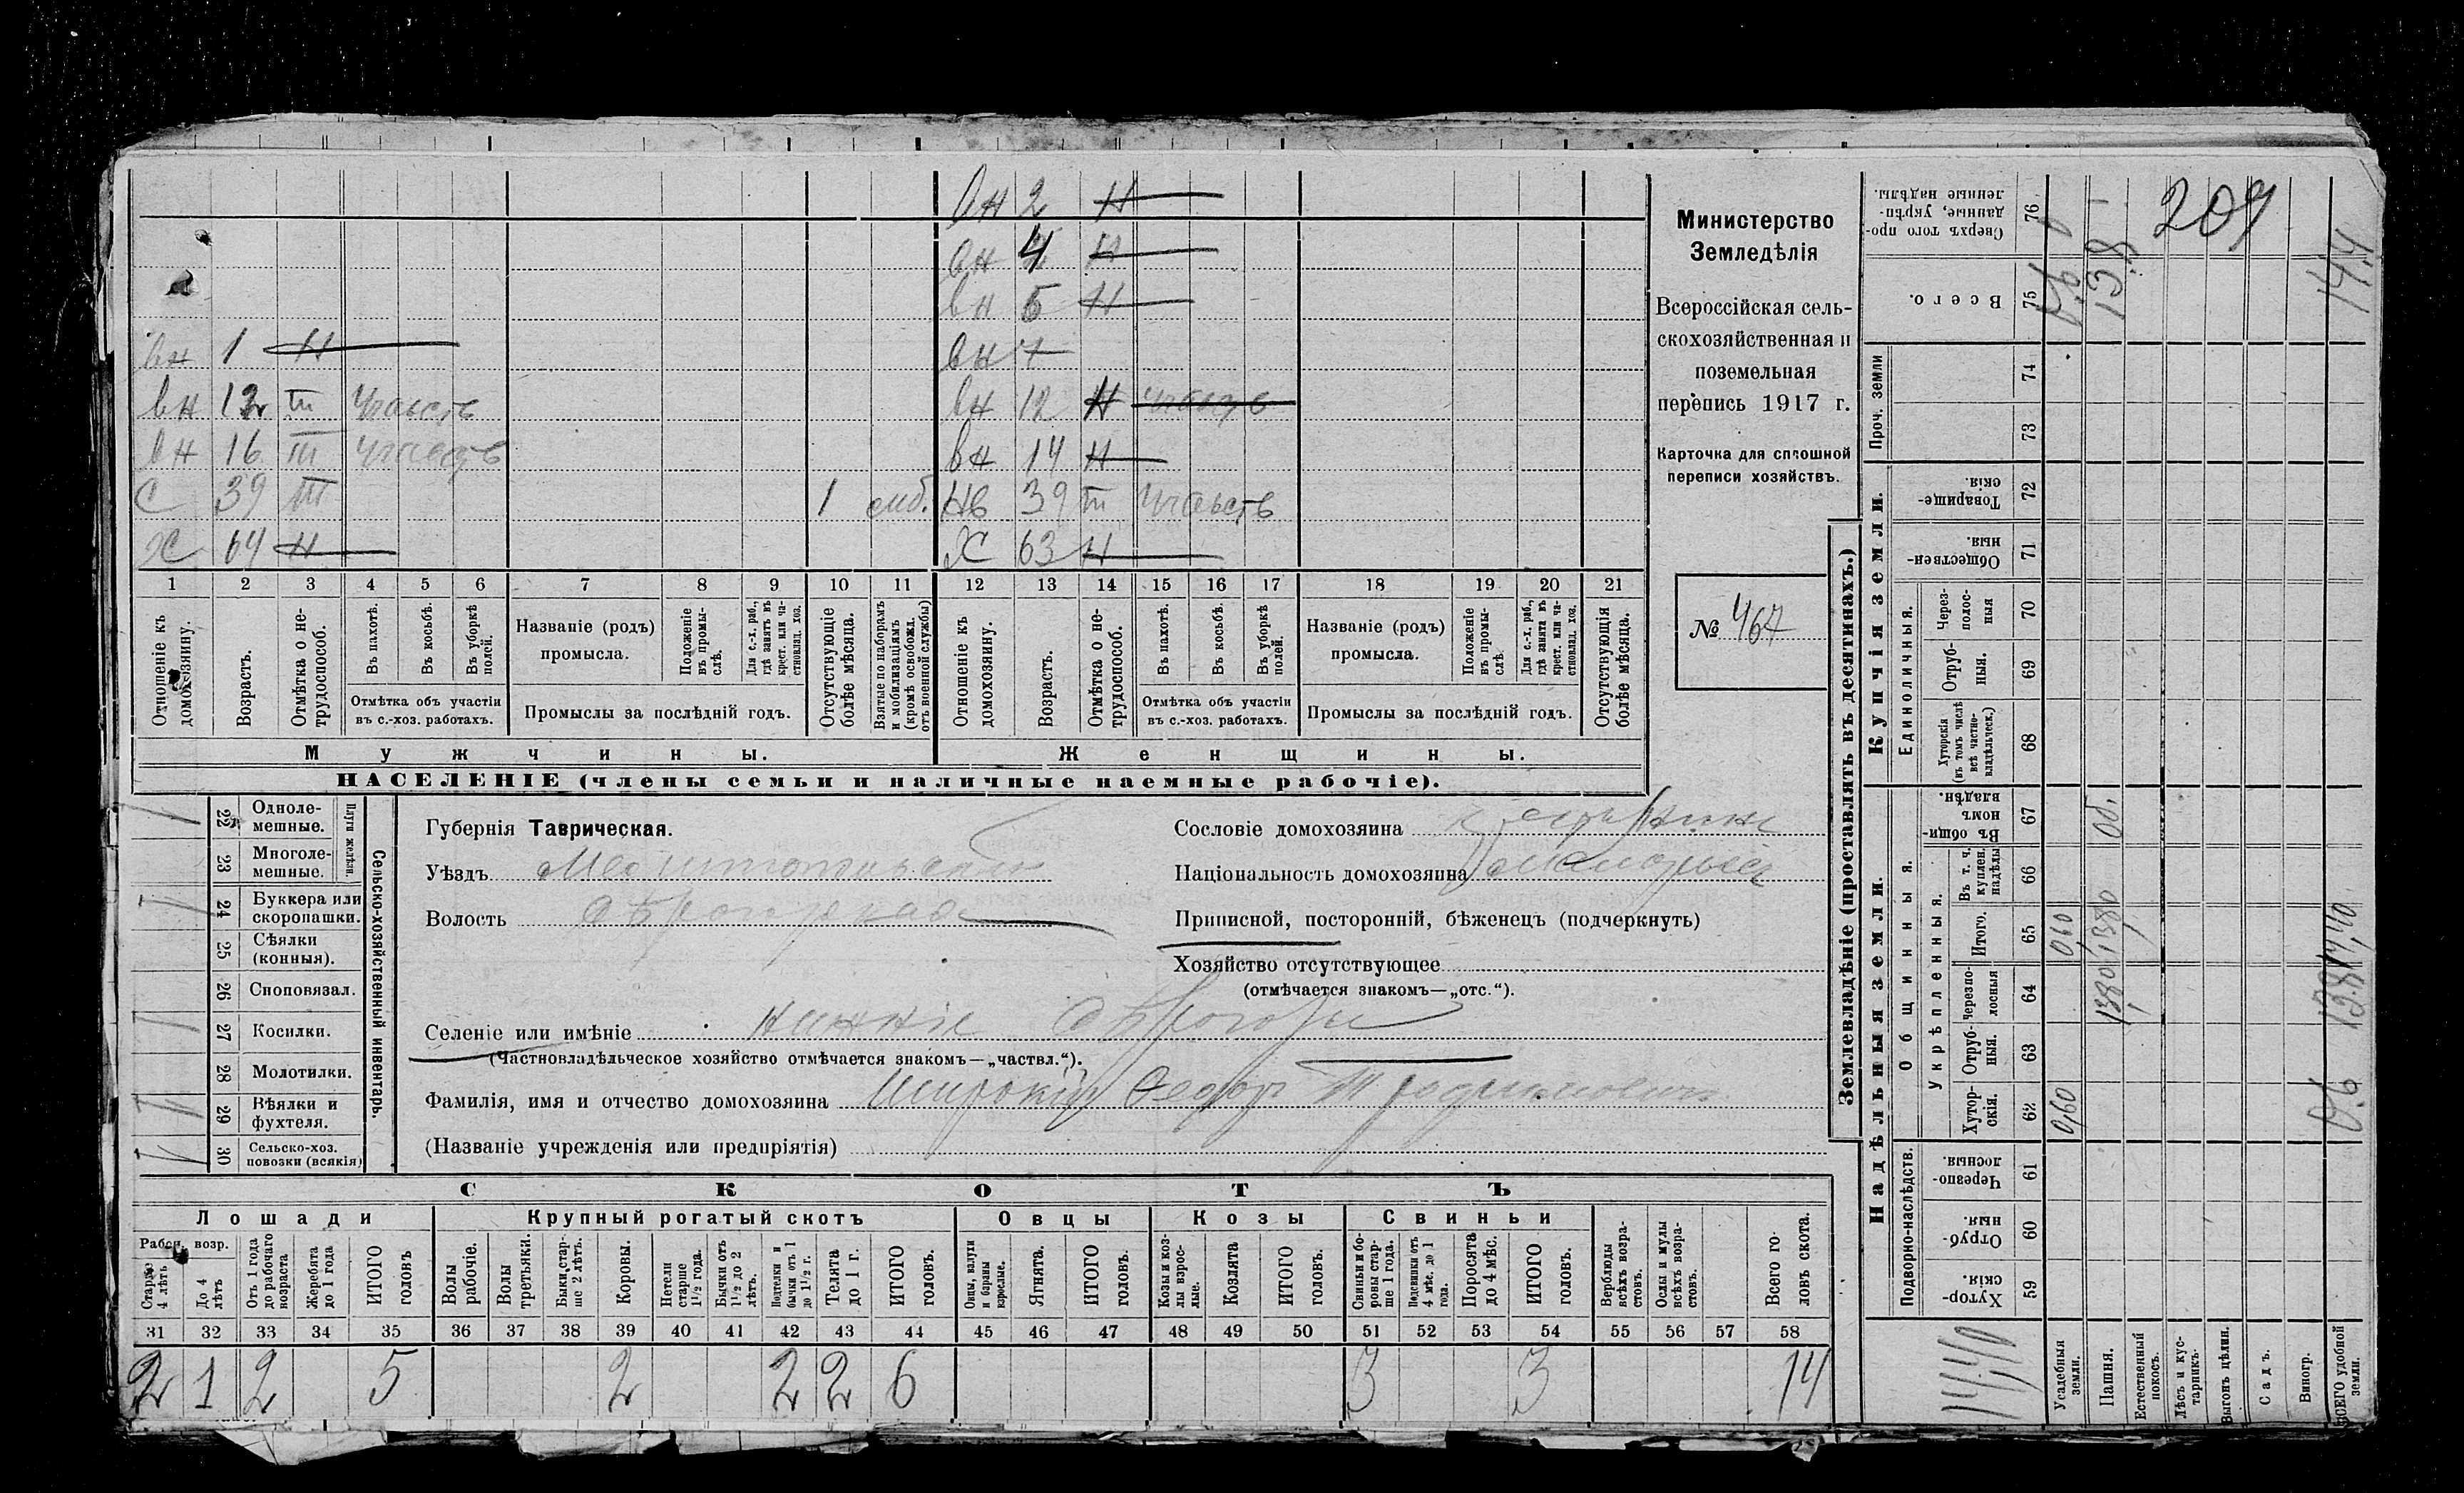 вн 2 н
вн 4 н
вн 5 н
вн 1 н вн 7
вн 13 т участв вн 12 н участв
вн 16 т участв вн 14 н
С 39 т 1 моб. Нв 39 т участв
Х 64 н Х 63 н
1 2 3 4 5 6 7 8 9 10 11 12 13 14 15 16 17 18 19 20 21
Отношеніе къ домохозяину.
Возрастъ.
Отмѣтка о нетрудоспособ.
Въ пахотѣ.
Въ косьбѣ.
Въ уборкѣ полей.
Отмѣтка объ участіи въ с.-хоз. работахъ.
Названіе (родъ) промысла.
Положеніе въ промыслѣ.
Для с.-х. раб., гдѣ занятъ въ крест. или частновлад. хоз.
Промыслы за послѣдній годъ.
Отсутствующіе болѣе мѣсяца.
Взятые по наборамъ и мобилизаціямъ (кромѣ освобожд. отъ военной службы)
Отношеніе къ домохозяину.
Возрастъ.
Отмѣтка о нетрудоспособ.
Въ пахотѣ.
Въ косьбѣ.
Въ уборкѣ полей.
Отмѣтка объ участіи въ с.-хоз. работахъ.
Названіе (родъ) промысла.
Положеніе въ промыслѣ.
Для с.-х. раб., гдѣ занята въ крест. или частновлад. хоз.
Промыслы за послѣдній годъ.
Отсутствующія болѣе мѣсяца.
Мужчины.
Женщины.
НАСЕЛЕНІЕ (члены семьи и наличные наемные рабочіе).
Министерство
Земледѣлія
Всероссійская сель-
скохозяйственная и
поземельная
перепись 1917 г.
Карточка для сплошной
переписи хозяйствъ.
№ 467
Сельско-хозяйственный инвентарь.
Плуги желѣзн.
22 Однолемешные.
23 Многолемешные.
24 Буккера или скоропашки.
25 Сѣялки (конныя).
26 Сноповязал.
27 Косилки.
28 Молотилки.
29 Вѣялки и фухтеля.
30 Сельско-хоз. повозки (всякія)
Губернія Таврическая.
Уѣздъ Мелитопольскій
Волость Сѣрогозская
Сословіе домохозяина крестьянинъ
Національность домохозяина
Приписной, посторонній, бѣженецъ (подчеркнуть)
Хозяйство отсутствующее
(отмѣчается знакомъ—„отс.“).
Селеніе или имѣніе Нижніе Сѣрогозы
(Частновладѣльческое хозяйство отмѣчается знакомъ—„частвл.“).
Фамилія, имя и отчество домохозяина Широкій Федоръ Трофимовичъ
(Названіе учрежденія или предпріятія)
СКОТЪ
Лошади
Крупный рогатый скотъ
Овцы
Козы
Свиньи
Рабоч. возр.
Старше 4 лѣтъ
До 4 лѣтъ
Отъ 1 года до рабочаго возраста
Жеребята до 1 года
ИТОГО головъ
Волы рабочіе.
Волы третьяки.
Быки старше 2 лѣтъ.
Коровы.
Нетели старше 1½ года.
Бычки отъ 1½ до 2 лѣтъ.
Подтелки и бычки отъ 1 до 1½ г.
Телята до 1 г.
ИТОГО головъ.
Овцы, валухи и бараны взрослые.
Ягнята.
ИТОГО головъ.
Козы и козлы взрослые.
Козлята
ИТОГО головъ.
Свиньи и боровы старше 1 года.
Подсвинки отъ 4 мѣс. до 1 года.
Поросята до 4 мѣс.
ИТОГО головъ.
Верблюды всѣхъ возрастовъ.
Ослы и мулы всѣхъ возрастовъ.
Всего головъ скота.
31 32 33 34 35 36 37 38 39 40 41 42 43 44 45 46 47 48 49 50 51 52 53 54 55 56 57 58
2 1 2 5 2 2 2 6 3 3 14
Землевладѣніе (проставлять въ десятинахъ.)
Надѣльныя земли.
Купчія земли.
Проч. земли
Подворно-наслѣдств.
Общинныя.
Укрѣпленныя.
Единоличныя.
Хуторскія. 59
Отрубныя. 60
Черезполосныя. 61
Хуторскія. 62
Отрубныя. 63
Черезполосныя 64
Итого. 65
Въ т. ч. куплен. надѣлы 66
Въ общинномъ владѣн. 67
Хуторскія (въ томъ числѣ всѣ частновладѣльческ.) 68
Отрубныя. 69
Черезполосныя 70
Общественныя. 71
Товарищескія. 72
73
74
Всего. 75
Сверхъ того проданные, укрѣпленные надѣлы. 76
Усадебныя земли. 060 060 0,6
Пашня. 1380 1380 об. 13,8
Естественный покосъ.
Лѣсъ и кустарникъ.
Выгонъ цѣлин.
Садъ.
Виногр.
ВСЕГО удобной земли. 0,6 13,8 14,40 14,4
14,40
209